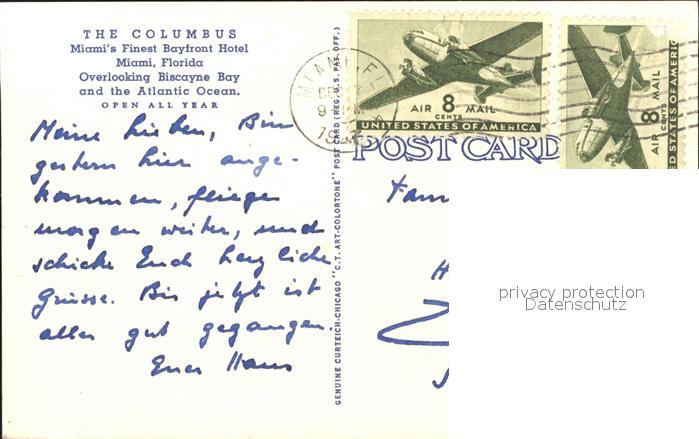 THE COLUMBUS
Miami's Finest Bayfront Hotel
Miami, Florida
Overlooking Biscayne Bay
and the Atlantic Ocean.
OPEN ALL YEAR
Meine Lieben, Bin
gestern hier ange-
kommen, fliege
morgen weiter, und
schicke Euch herzliche
Grüsse. Bis jetzt ist
alles gut gegangen.
Euer Hans
GENUINE CURTEICH-CHICAGO "C.T. ART-COLORTONE" POST CARD (REG. U.S. PAT. OFF.)
MIAMI, FLA
AIR 8 MAIL
CENTS
UNITED STATES OF AMERICA
AIR 8 MAIL
CENTS
ED STATES OF AMERICA
POST CARD
Fam
privacy protection
Datenschutz